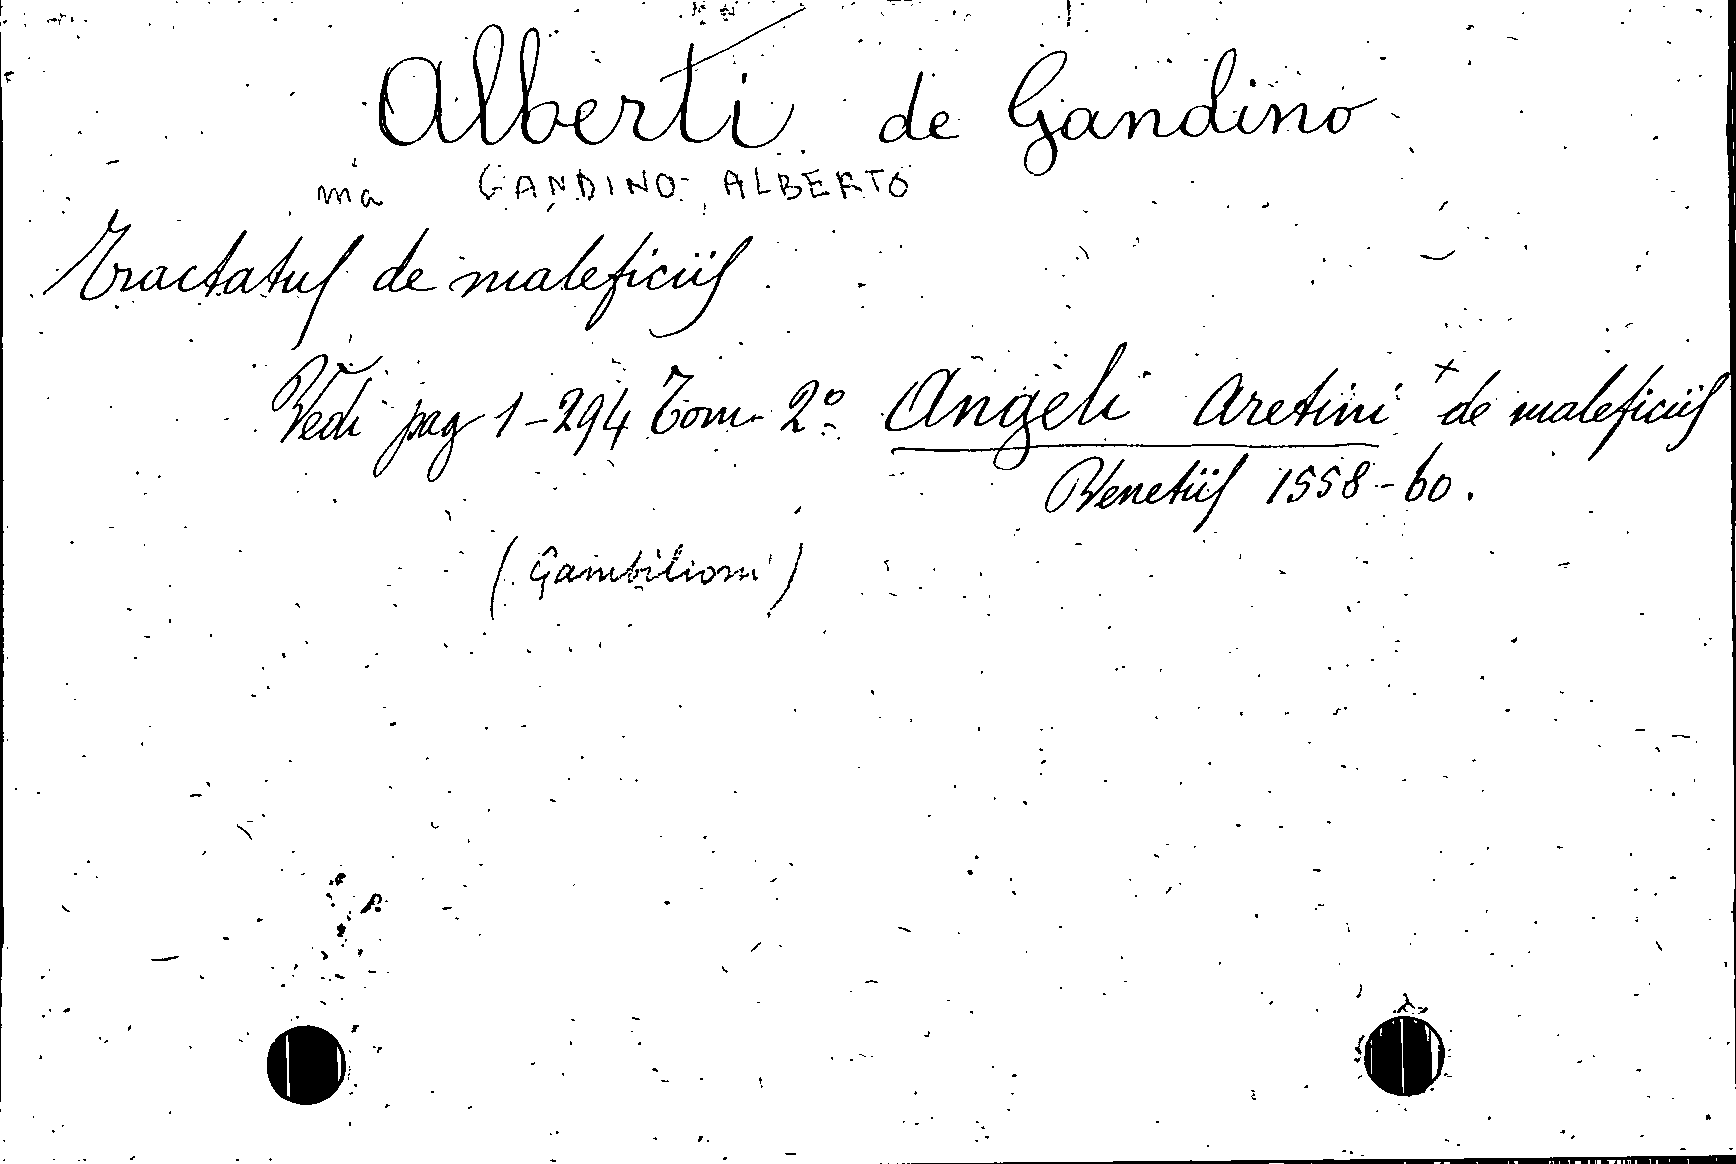 Alberti de Gandino
ma GANDINO ALBERTO
Tractatus de maleficiis
Vedi pag 1-294 Tom. 2º Angeli Aretini + de maleficiis
Venetiis 1558-60.
(Gambilioni)